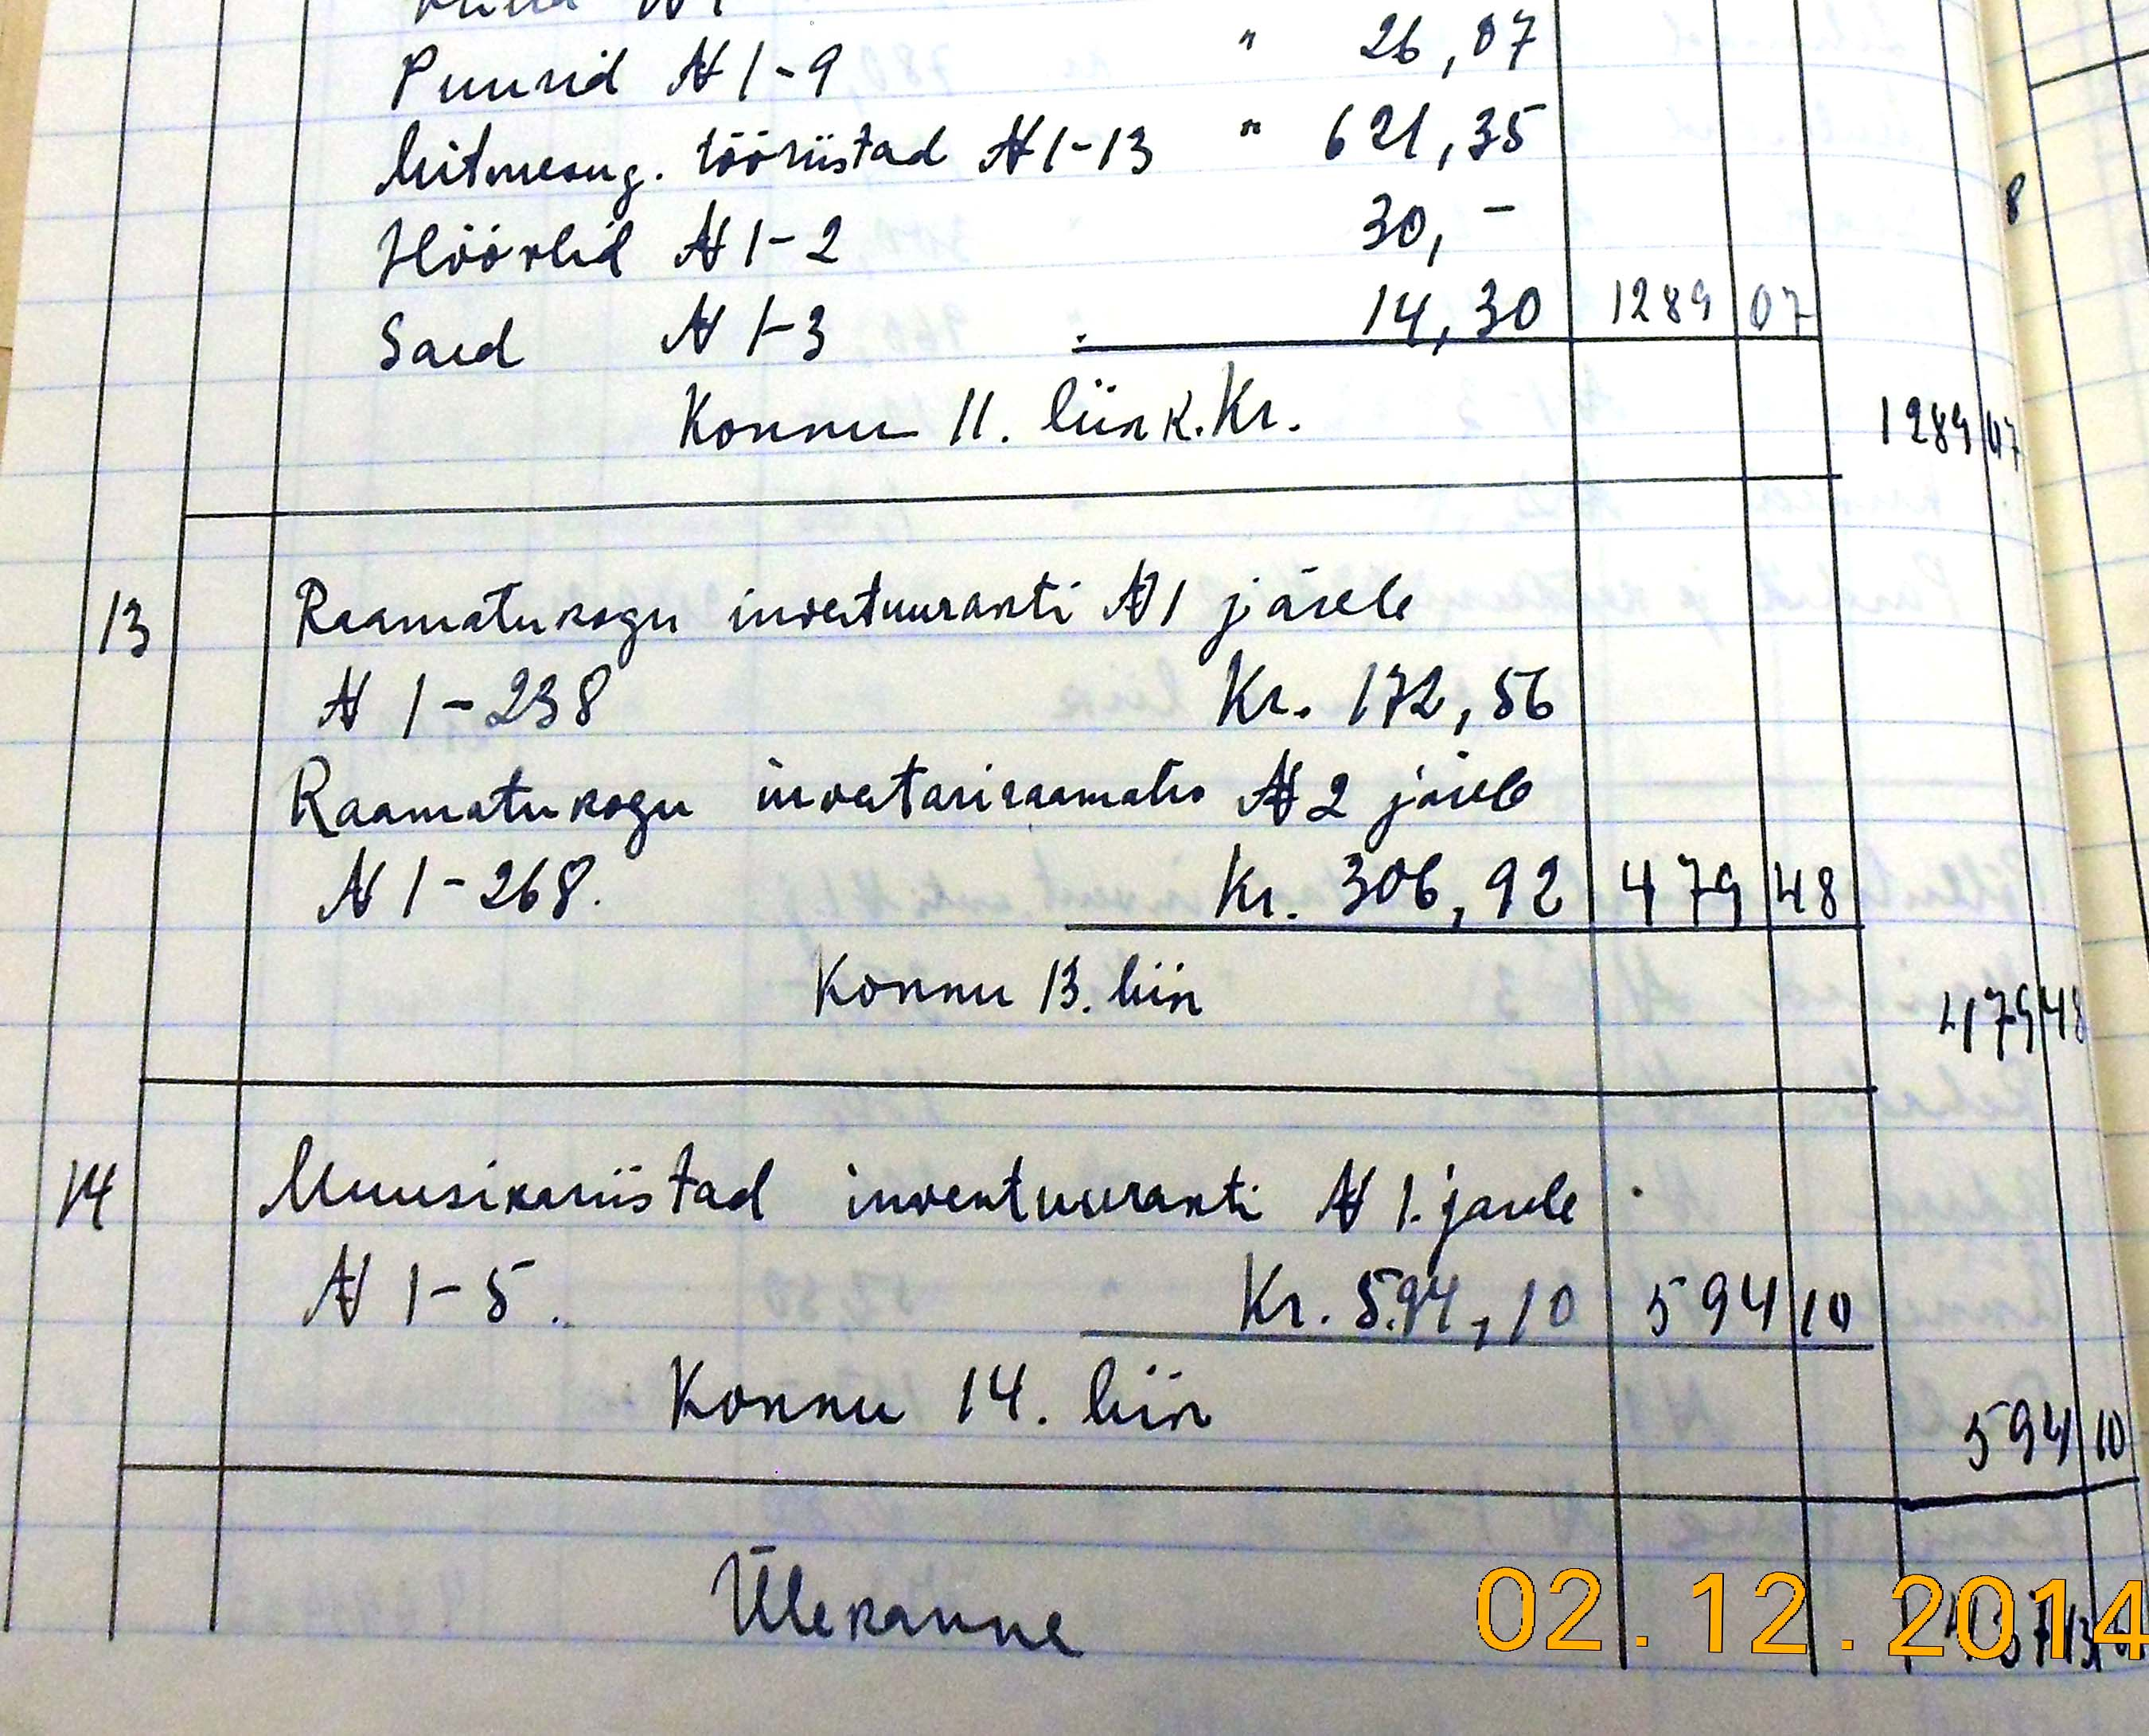 Puurid № 1-9 " 26,07
Mitmesug. tööriistad № 1-13 " 621,35
8
Höövlid № 1-2 30,-
Saed № 1-3 14,30 1289 07
Konnu 11. liik. Kr.
1289 07
13 Raamatukogu inventuurakti № 1 järele
№ 1-238 Kr. 172,56
Raamatukogu inventariraamatu № 2 järele
№ 1-268. Kr. 306,92 479 48
Konnu 13. liik
479 48
14 Muusikariistad inventuurakti № 1. järele
№ 1-5. Kr. 594,10 594 10
Konnu 14. liik
594 10
Ülekanne
02.12.2014